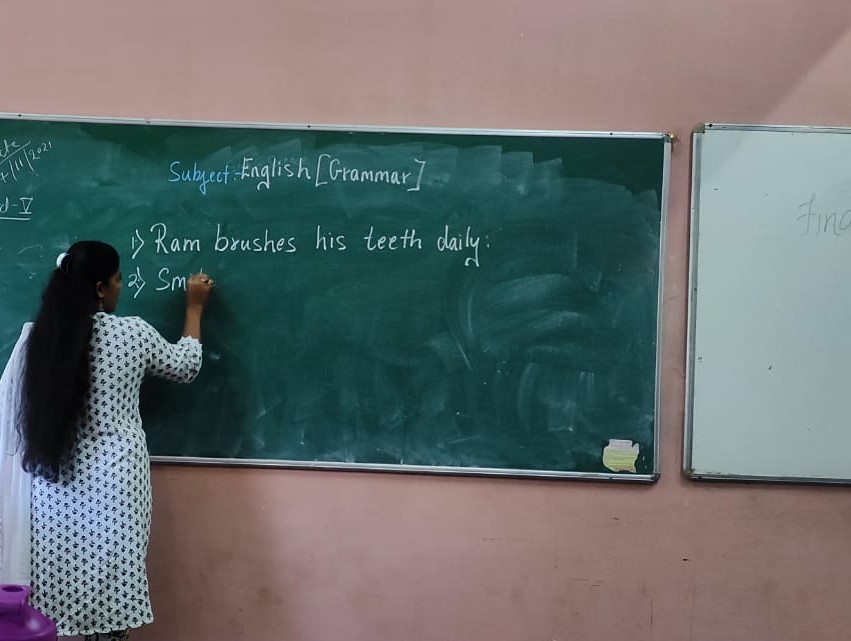 11/2021
Subject:- English [Grammar]
1) Ram brushes his teeth daily.
2) Sm